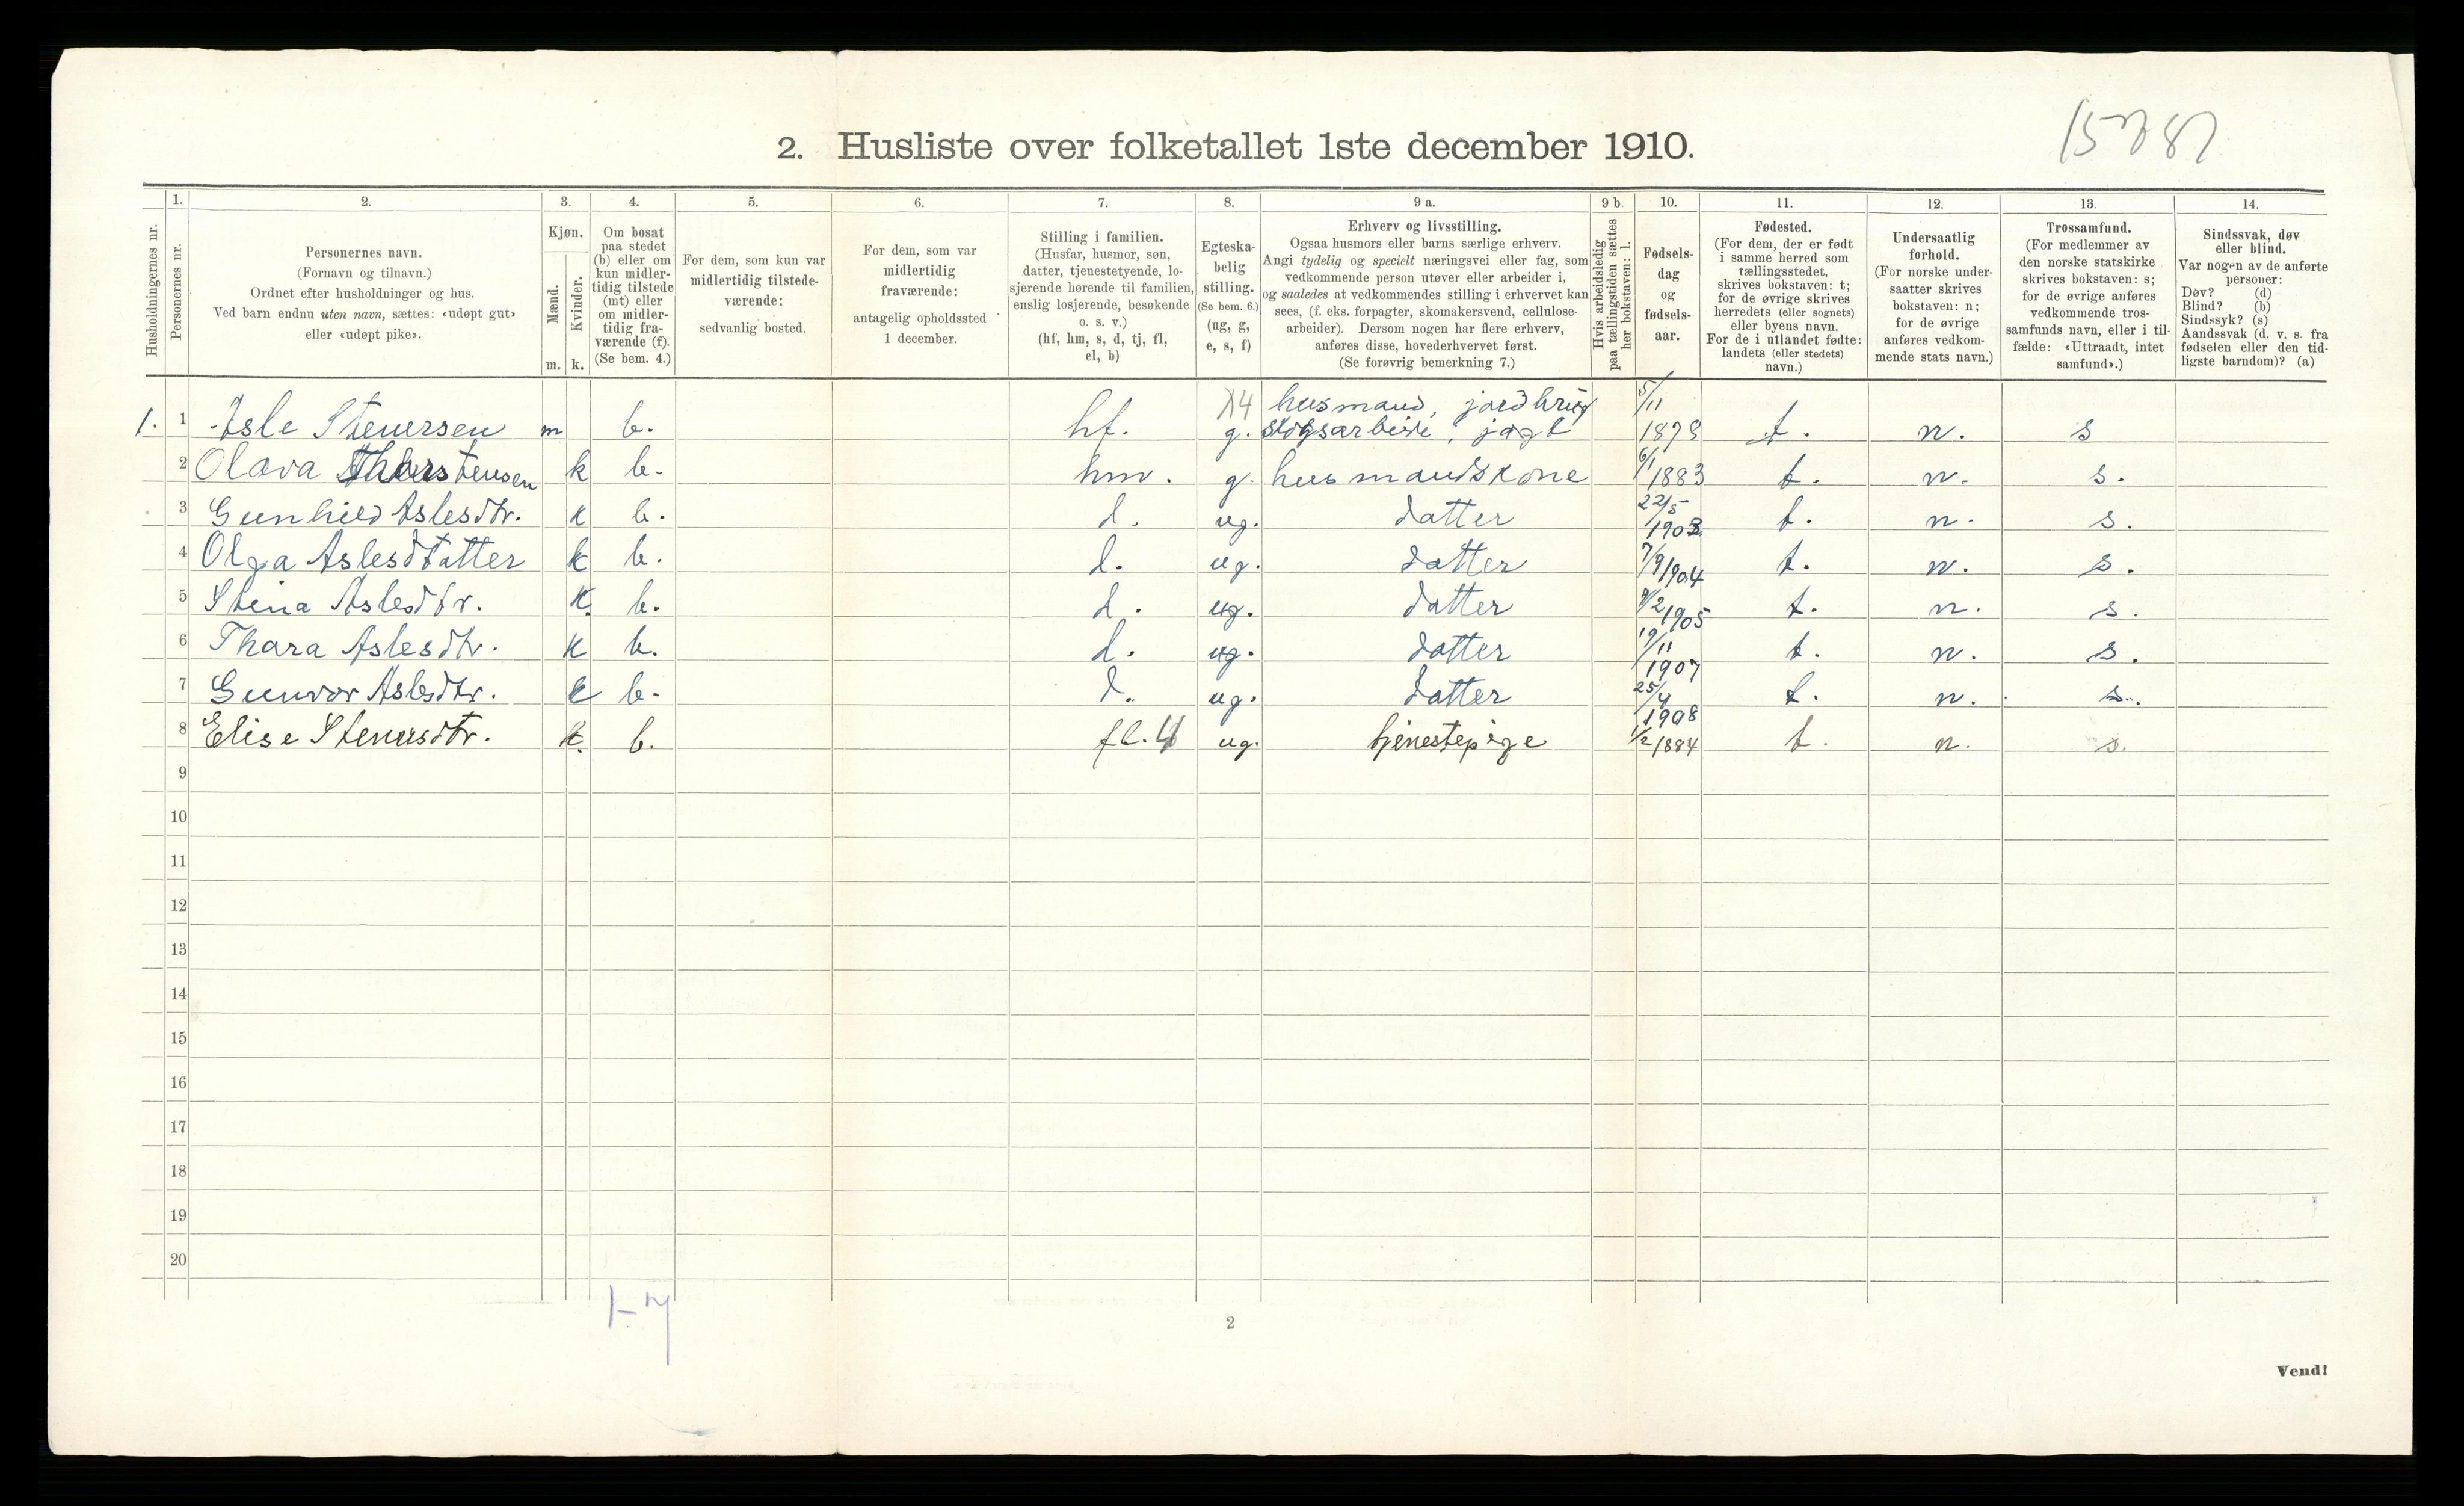 2. Husliste over folketallet 1ste december 1910.
1. 2. 3. 4. 5. 6. 7. 8. 9 a. 9 b. 10. 11. 12. 13. 14.
Husholdningernes nr.
Personernes nr.
Personernes navn.
(Fornavn og tilnavn.)
Ordnet efter husholdninger og hus.
Ved barn endnu uten navn, sættes: «udøpt gut»
eller «udøpt pike».
Kjøn.
Mænd.
Kvinder.
m. k.
Om bosat
paa stedet
(b) eller om
kun midler-
tidig tilstede
(mt) eller
om midler-
tidig fra-
værende (f).
(Se bem. 4.)
For dem, som kun var
midlertidig tilstede-
værende:
sedvanlig bosted.
For dem, som var
midlertidig
fraværende:
antagelig opholdssted
1 december.
Stilling i familien.
(Husfar, husmor, søn,
datter, tjenestetyende, lo-
sjerende hørende til familien,
enslig losjerende, besøkende
o. s. v.)
(hf, hm, s, d, tj, fl,
el, b)
Egteska-
belig
stilling.
(Se bem. 6.)
(ug, g,
e, s, f)
Erhverv og livsstilling.
Ogsaa husmors eller barns særlige erhverv.
Angi tydelig og specielt næringsvei eller fag, som
vedkommende person utøver eller arbeider i,
og saaledes at vedkommendes stilling i erhvervet kan
sees, (f. eks. forpagter, skomakersvend, cellulose-
arbeider). Dersom nogen har flere erhverv,
anføres disse, hovederhvervet først.
(Se forøvrig bemerkning 7.)
Hvis arbeidsledig
paa tællingstiden sættes
her bokstaven: l.
Fødsels-
dag
og
fødsels-
aar.
Fødested.
(For dem, der er født
i samme herred som
tællingsstedet,
skrives bokstaven: t;
for de øvrige skrives
herredets (eller sognets)
eller byens navn.
For de i utlandet fødte:
landets (eller stedets)
navn.)
Undersaatlig
forhold.
(For norske under-
saatter skrives
bokstaven: n;
for de øvrige
anføres vedkom-
mende stats navn.)
Trossamfund.
(For medlemmer av
den norske statskirke
skrives bokstaven: s;
for de øvrige anføres
vedkommende tros-
samfunds navn, eller i til-
fælde: «Uttraadt, intet
samfund».)
Sindssvak, døv
eller blind.
Var nogen av de anførte
personer:
Døv? (d)
Blind? (b)
Sindssyk? (s)
Aandssvak (d. v. s. fra
fødselen eller den tid-
ligste barndom)? (a)
1. 1 Asle Stenersen m b. hf. g. husmand, jordbrug skogsarbeide, jagt 5/11 1878 t. n. s
2 Olava Thorstensen k b. hm. g. husmandskone 6/1 1883 t. n. s.
3 Gunhild Aslesdtr. k b. d. ug. datter 22/5 1903 t. n. s.
4 Olga Aslesdtatter k b. d. ug. datter 7/9 1904 t. n. s.
5 Stina Aslesdtr. k. b. d. ug. datter 1905 t. n. s.
6 Thora Aslesdtr. k b. d. ug. datter 19/11 1907 t. n. s.
7 Gunvor Aslesdtr. k b. d. ug. datter 25/4 1908 t. n. s.
8 Elise Stenersdtr. k. b. fl. 4 ug. tjenestepige 1/2 1884 t. n. s.
9
10
11
12
13
14
15
16
17
18
19
20
2
Vend!